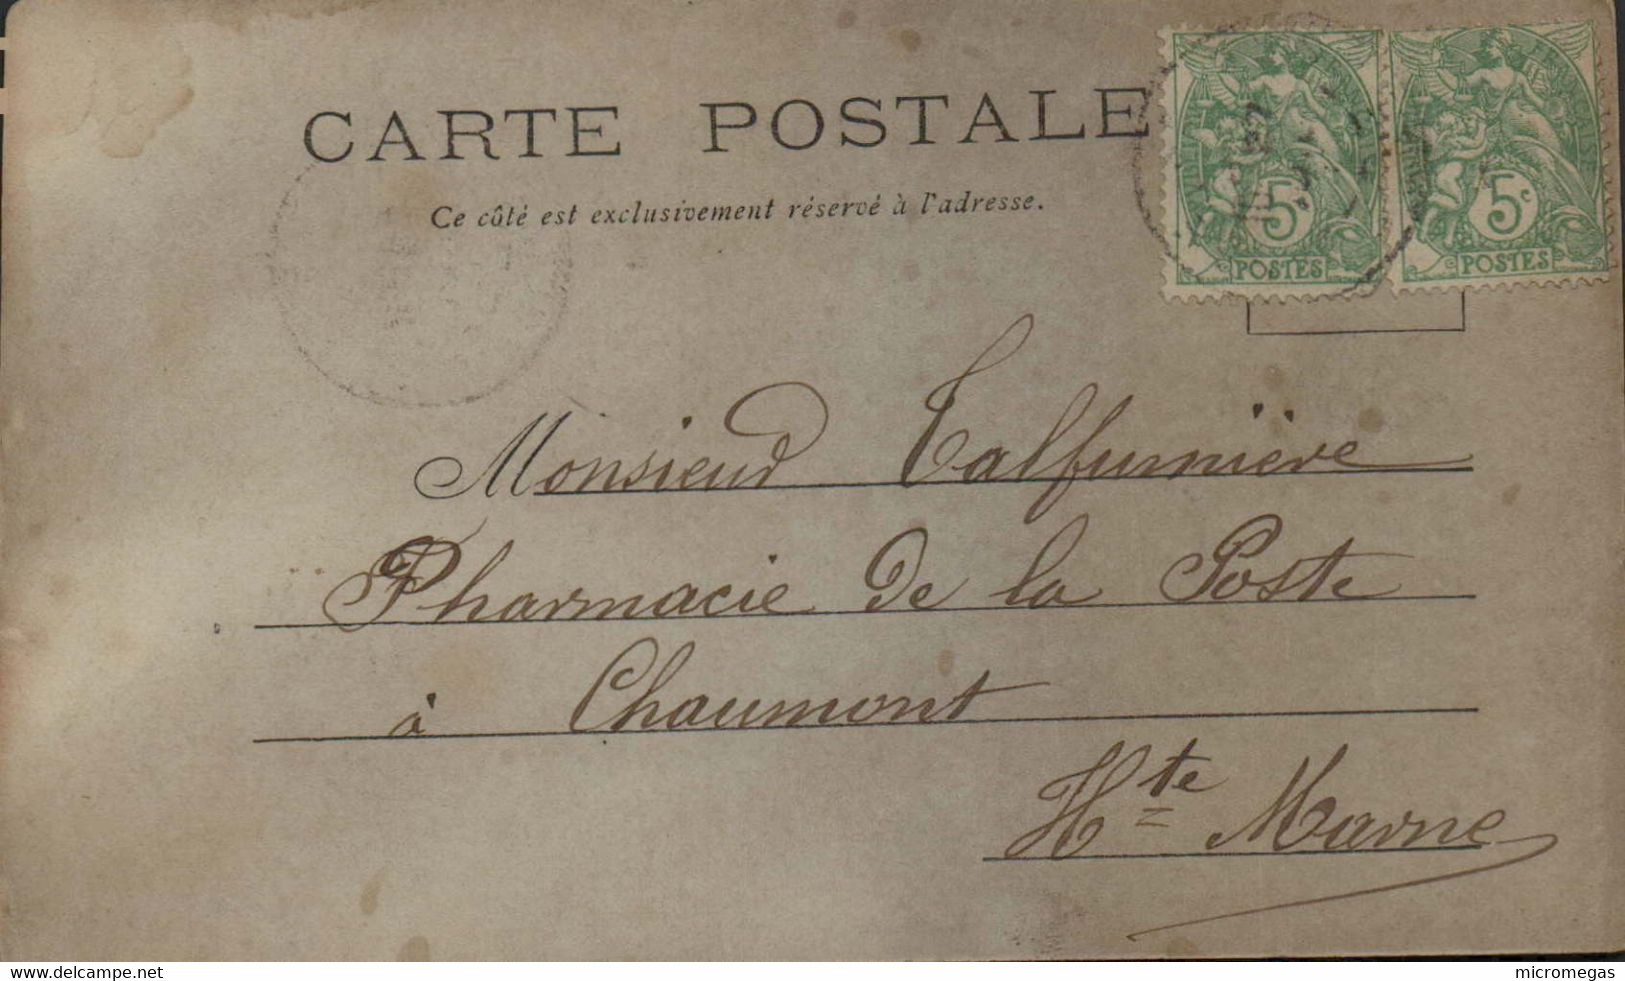 CARTE POSTALE
Ce côté est exclusivement réservé à l'adresse.
5c
POSTES
5c
POSTES
Monsieur Talfumière
Pharmacie de la Poste
à Chaumont
Hte Marne
www.delcampe.net
micromegas